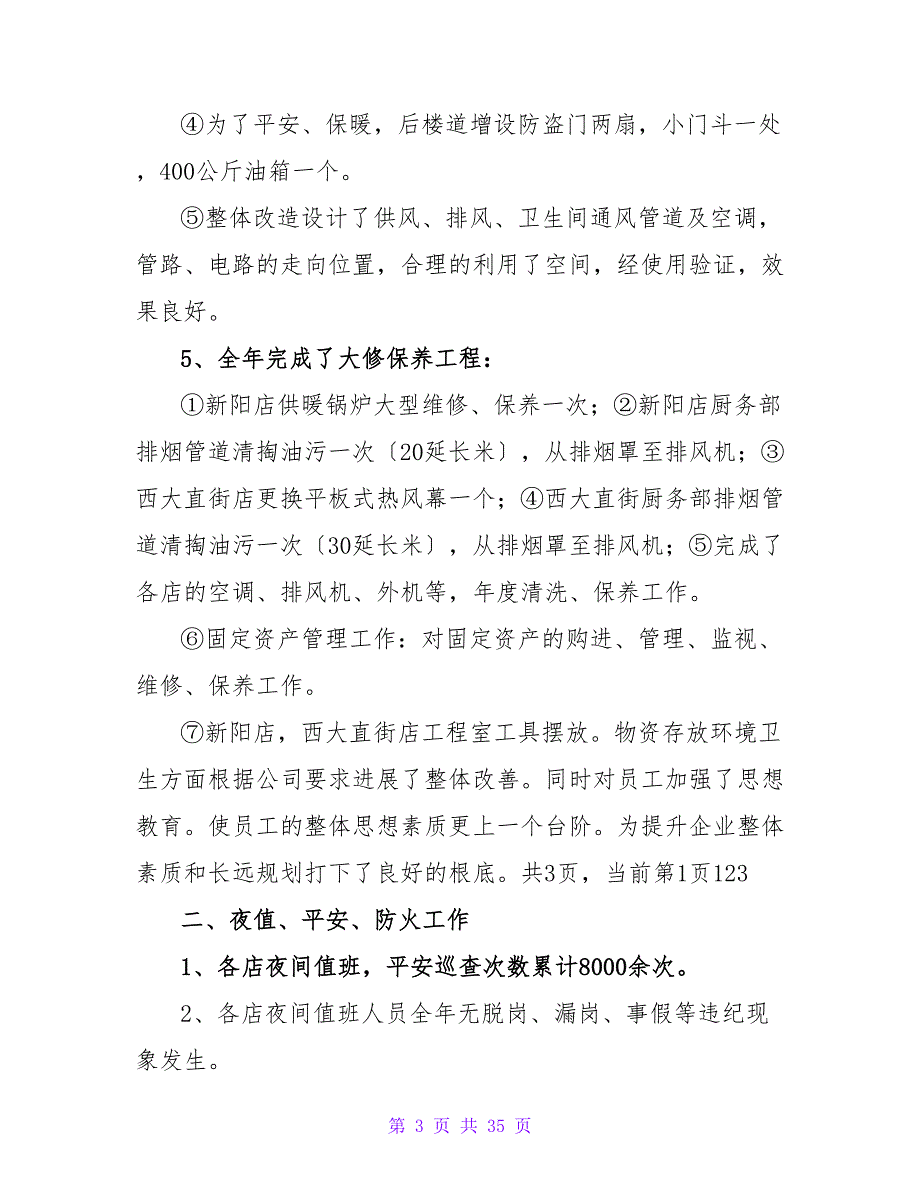 ④为了平安、保暖，后楼道增设防盗门两扇，小门斗一处
，400公斤油箱一个。
⑤整体改造设计了供风、排风、卫生间通风管道及空调，
管路、电路的走向位置，合理的利用了空间，经使用验证，效
果良好。
5、全年完成了大修保养工程：
①新阳店供暖锅炉大型维修、保养一次；②新阳店厨务部
排烟管道清掏油污一次〔20延长米〕，从排烟罩至排风机；③
西大直街店更换平板式热风幕一个；④西大直街厨务部排烟管
道清掏油污一次〔30延长米〕，从排烟罩至排风机；⑤完成了
各店的空调、排风机、外机等，年度清洗、保养工作。
⑥固定资产管理工作：对固定资产的购进、管理、监视、
维修、保养工作。
⑦新阳店，西大直街店工程室工具摆放。物资存放环境卫
生方面根据公司要求进展了整体改善。同时对员工加强了思想
教育。使员工的整体思想素质更上一个台阶。为提升企业整体
素质和长远规划打下了良好的根底。共3页，当前第1页123
二、夜值、平安、防火工作
1、各店夜间值班，平安巡查次数累计8000余次。
2、各店夜间值班人员全年无脱岗、漏岗、事假等违纪现
象发生。
第 3 页 共 35 页